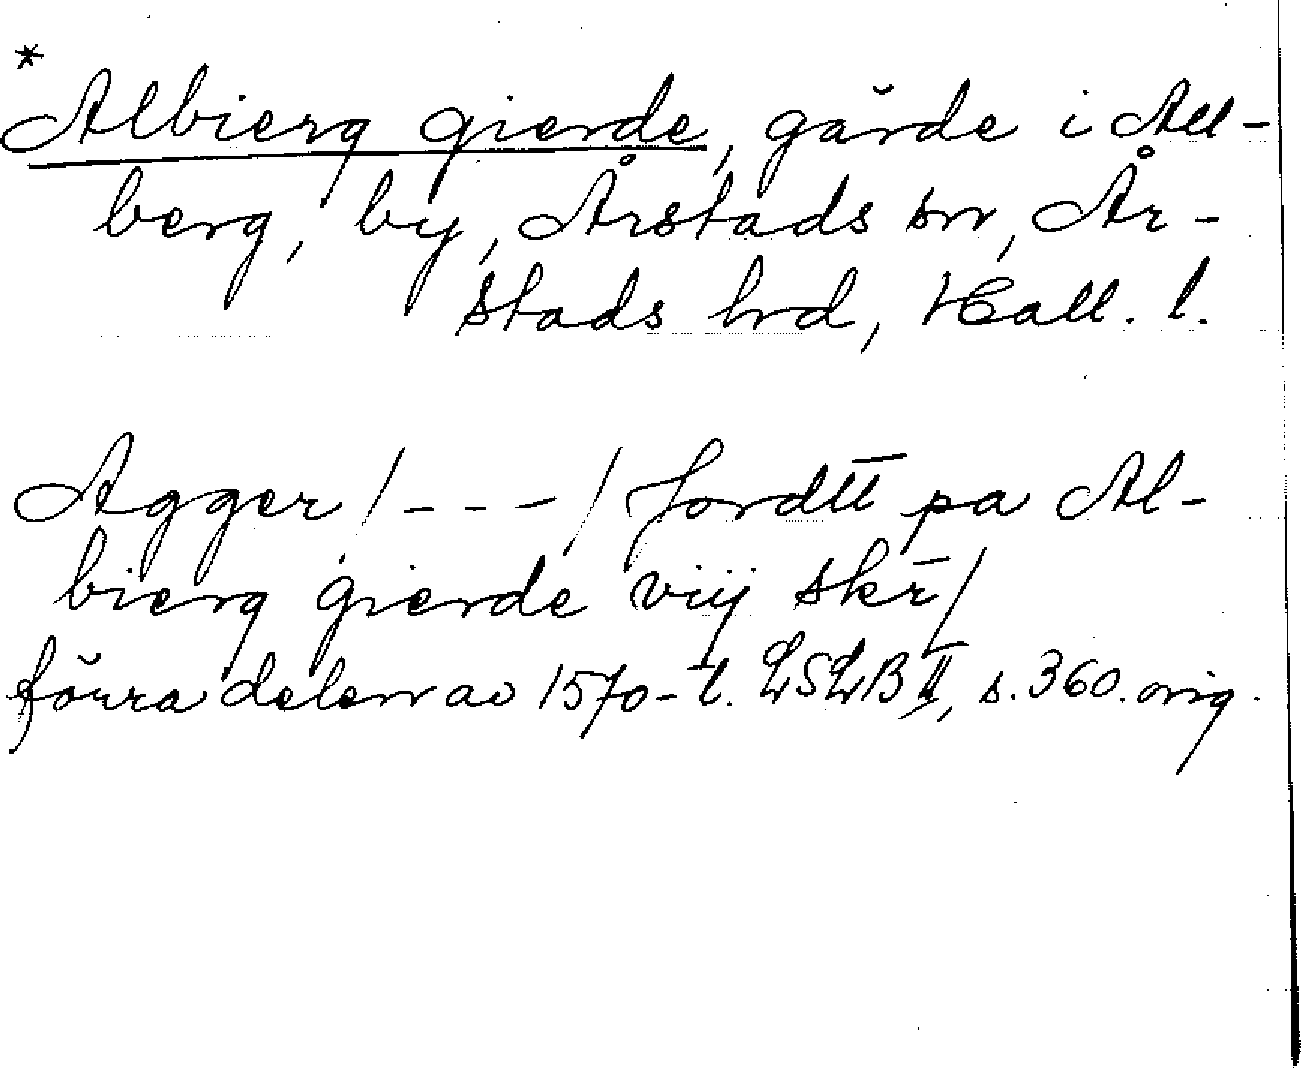 *
Albierg gierde, gärde i All-
berg, by, Årstads sn, År-
stads hrd, Hall. l.
Agger /---/ Jordtt̄ pa Al-
bierg gierde vıȷ skr̄/
förra delen av 1570-t. LSLB II, s. 360. orig.